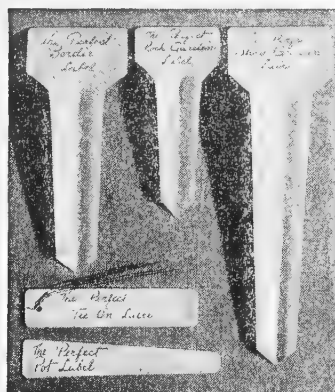 The Perfect
Border
Label
The Perfect
Rock Garden
Label
The Perfect
Tie On Label
The Perfect
Pot Label